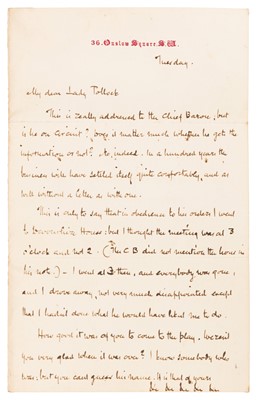 36. Onslow Square. S.W.
Tuesday.
My dear Lady Pollock
This is really addressed to the Chief Baron, but
is he on circuit? does it matter much whether he gets the
information or not? No, indeed. In a hundred years the
business will have settled itself quite comfortably, and as
well without a letter as with one.
This is only to say that in obedience to his orders I went
to Devonshire House: but I thought the meeting was at 3
o'clock and not 2 (The C B did not mention the hour in
his note.) — I went at 3 then, and everybody was gone,
and I drove away, not very much disappointed except
that I hadn't done what he would have liked me to do.
How good it was of you to come to the play. Weren't
you very glad when it was over? I know somebody who
was, but you can guess his name. It is that of yours